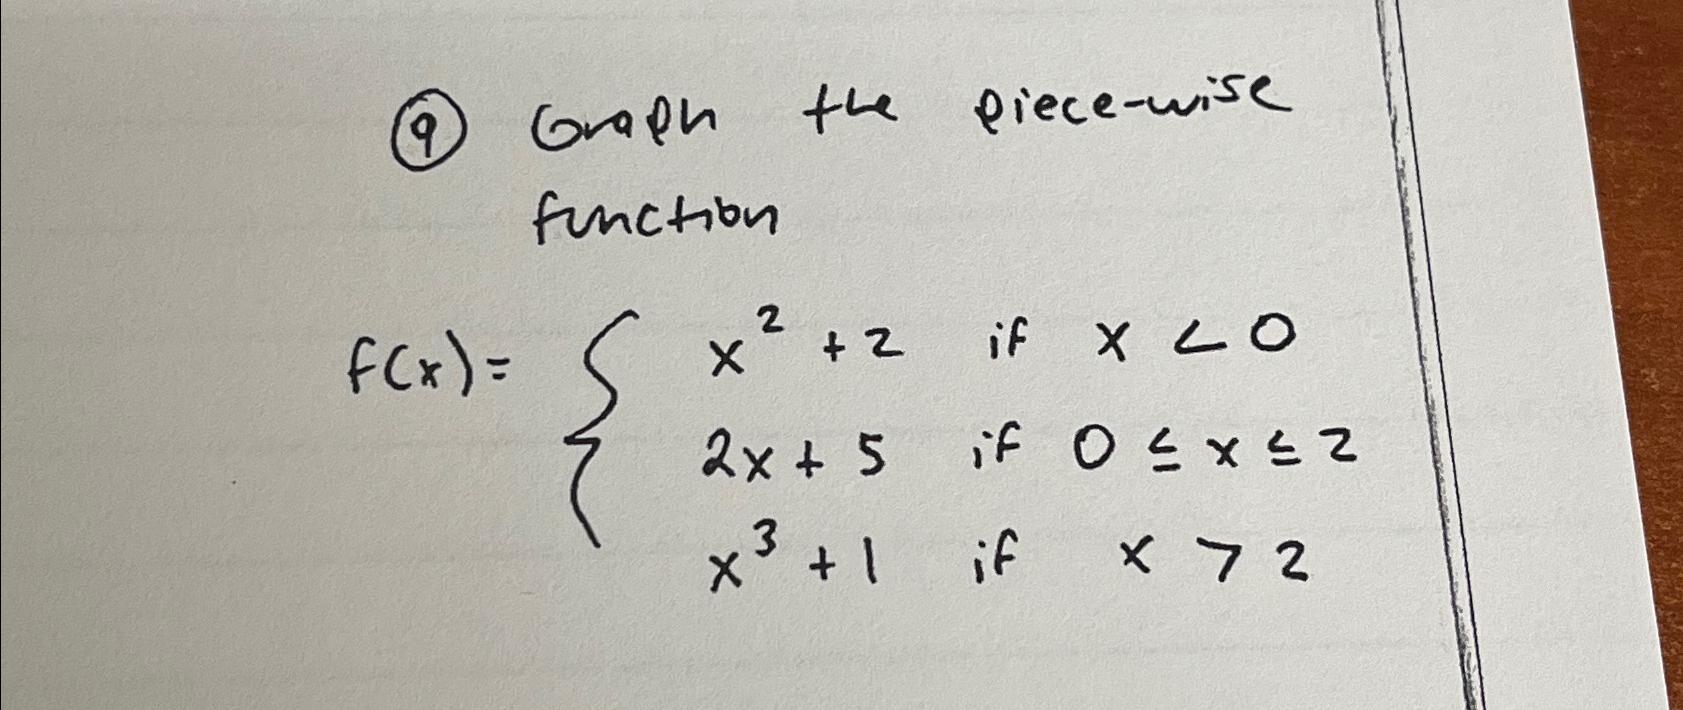 9 Graph the piece-wise
function
f(x)= { x² + 2 if x < 0
2x + 5 if 0 ≤ x ≤ 2
x³ + 1 if x > 2